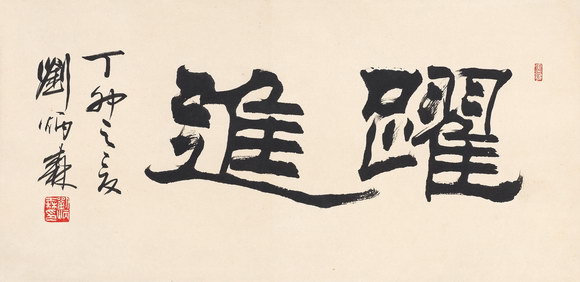 躍進
丁卯之夏
劉炳森